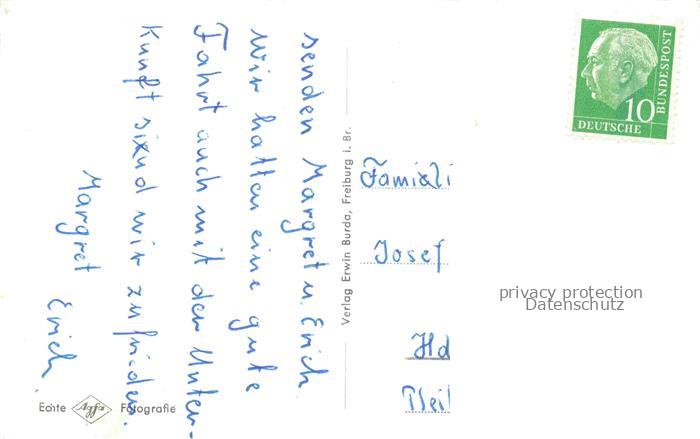 senden Margret u. Erich.
Wir hatten eine gute
Fahrt auch mit der Unter-
kunft sind wir zufrieden.
Margret
Erich.
Echte Agfa Fotografie
Verlag Erwin Burda, Freiburg i. Br.
10
DEUTSCHE
BUNDESPOST
Famili
Josef
Hd
privacy protection
Datenschutz